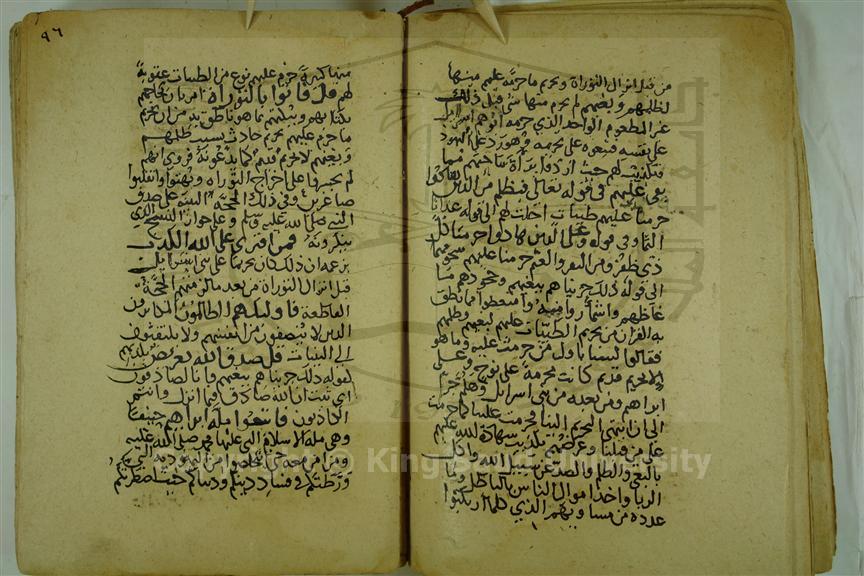 من قبل انزال التوراة وتحريم ما حرم عليهم منها
لظلمهم وبغيهم لم يحرم منها شي قبل ذلك
غير المطعوم الواحد الذي حرمه ابوهم اسراىل
على نفسه فتبعوه على تحريمه وهو رد على اليهود
وتكذيب لهم حيث ارادوا براة ساحتهم مما
نعى عليهم في قوله تعالى فبظلم من الذين هادوا
حرمنا عليهم طيبات احلت لهم الى قوله عذابا
اليما وفي قوله وعلى الذين هادوا حرمنا كل
ذي ظفر ومن البقر والغنم حرمنا عليهم شحومهما
الى قوله ذلك جزيناهم ببغيهم وجحودهم ما
غاظهم واشمازوا منه وامتعضوا مما نطق
به القران من تحريم الطيبات عليهم لبغيهم وظلمهم
فقالوا لسنا باول من حرمت عليه وما هو
الا تحريم قديم كانت محرمة على نوح وعلى
ابراهيم ومن بعده من بني اسراىل وهلم جرا
الى ان انتهى التحريم الينا فحرمت علينا كما حرمت
على من قبلنا وغرضهم تكذيب شهادة الله عليهم
بالبغي والظلم والصد عن سبيل الله واكل
الربا واخذ اموال الناس بالباطل وما
عدد من مساويهم الذي كلما ارتكبوا
٩٦
منها كبيرة حرم عليهم نوع من الطيبات عقوبة
لهم قل فاتوا بالتوراة امر بان يحاجهم
بكتابهم ويبكتهم بما هو ناطق به من ان تحريم
ما حرم عليهم تحريم حادث بسبب ظلمهم
وبغيهم لا تحريم قديم كما يدعونه فروي انهم
لم يجسروا على اخراج التوراة وبهتوا وانقلبوا
صاغرين وفي ذلك الحجة البينة على صدق
النبي صلى الله عليه وسلم وعلى جواز النسخ الذي
ينكرونه فمن افترى على الله الكذب
بزعمه ان ذلك كان محرما على بني اسراىل
قبل انزال التوراة من بعد ما لزمتهم الحجة
القاطعة فاولىك هم الظالمون المكابرون
الذين لا ينصفون من انفسهم ولا يلتفتون
الى البينات قل صدق الله تعريض بكذبهم
كقوله ذلك جزيناهم ببغيهم وانا لصادقون
اي ثبت ان الله صادق فيما انزل وانتم
الكاذبون فاتبعوا ملة ابراهيم حنيفا
وهي ملة الاسلام التي عليها محمد صلى الله عليه
ومن امن معه حتى تتخلصوا من اليهودية التي
ورطتكم في فساد دينكم ودنياكم حيث اضطرتكم
Copyright © King Saud University